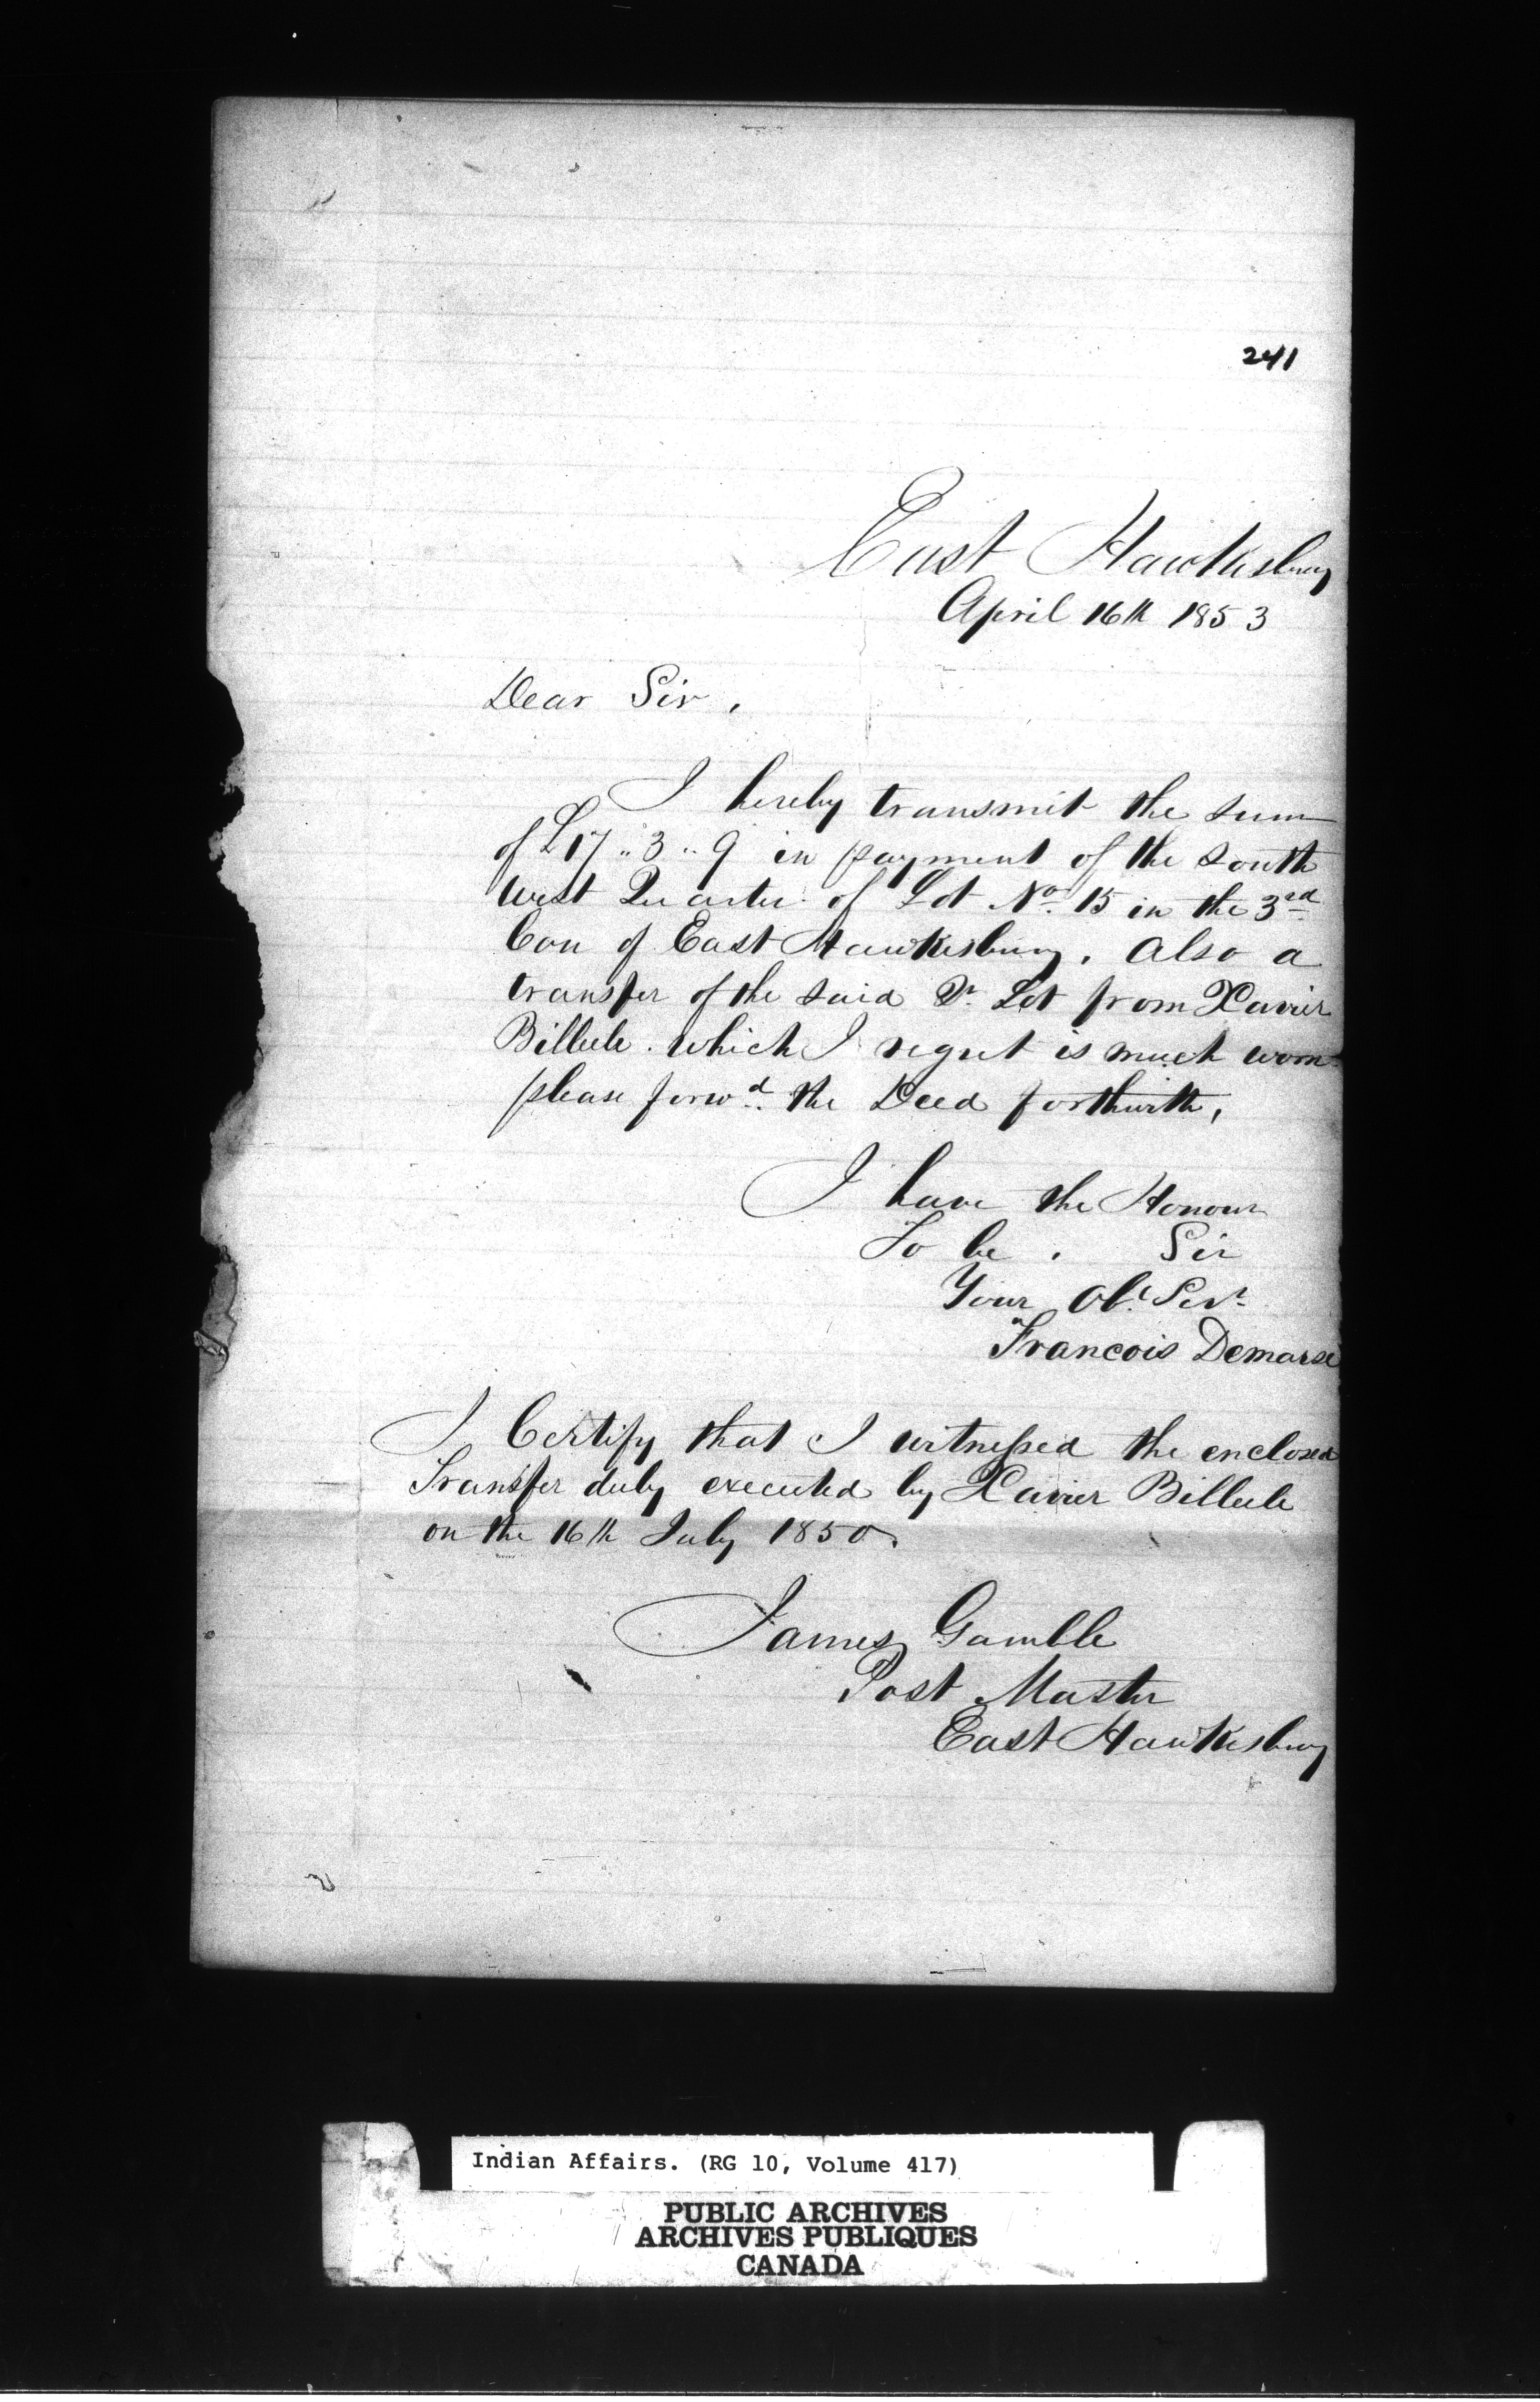 241
East Hawkesbury
April 16th 1853
Dear Sir,
I hereby transmit the sum
of £17..3..9 in payment of the South
West Quarter of Lot No. 15 in the 3rd
Con of East Hawkesbury. Also a
transfer of the said Qr. Lot from Xavier
Billule. which I regret is much worn
please forwd. the Deed forthwith,
I have the Honour
To be. Sir
Your Obt. Servt.
Francois Demarse
I Certify that I witnessed the enclosed
Transfer duly executed by Xavier Billule
on the 16th July 1850.
James Gamble
Post Master
East Hawkesbury
Indian Affairs. (RG 10, Volume 417)
PUBLIC ARCHIVES
ARCHIVES PUBLIQUES
CANADA